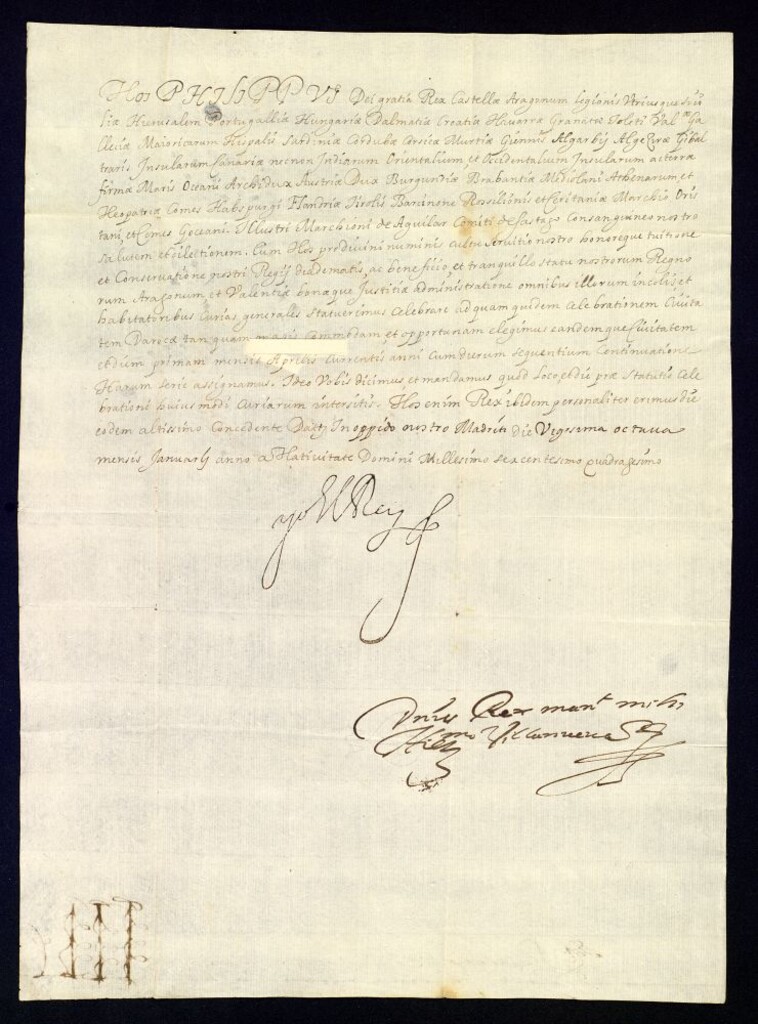 Nos PHILIPPVS Dei gratia Rex Castellæ Aragonum legionis Vtriusque sici
liæ Hierusalem Portugalliæ Hungariæ Dalmatiæ Croatiæ Navarræ Granatæ Toleti Val.æ Ga
lleciæ Maioricarum Hispalis Sardiniæ Cordubæ Corsicæ Murtiæ Giennis Algarbij Algeziræ Gibal
traris Insularum Canariæ necnon Indiarum Orientalium et Occidentalium Insularum ac terræ
firmæ Maris Oceani Archidux Austriæ Dux Burgundiæ Brabantiæ Mediolani Athenarum et
Neopatriæ Comes Habspurgi Flandriæ Tirolis Barcinone Rossilionis et Ceritaniæ Marchio Oris
tani, et Comes Goceani. Illustri Marchioni de Aguilar Comiti de Sastago Consanguineo nostro
salutem et dilectionem. Cum Nos pro divini numinis cultu servitio nostro honoreque tuitione
et Conservatione nostri Regij diadematis, ac beneficio, et tranquillo statu nostrorum Regno
rum Aragonum et Valentiæ bonæque Justitiæ administratione omnibus illorum incolis, et
habitatoribus Curias generales statuerimus Celebrare ad quam quidem Celebrationem Civita
tem Darocæ tanquam magis Commodam, et opportunam elegimus eandemque Civitatem
et diem primam mensis Aprilis Currentis anni Cum dierum sequentium Continuatione
Harum serie assignamus. Ideo Vobis dicimus, et mandamus quod loco et die præ statutis Cele
brationi huius modi Curiarum intersitis. Nos enim Rex ibidem personaliter erimus die
eodem altissimo Concedente Datt. In oppido nostro Madriti die Vigesima octaua
mensis Januarij anno a Nativitate Domini Millesimo sexcentesimo quadragesimo
yo El Rey
Dñus Rex mant. mihi
Villanueva